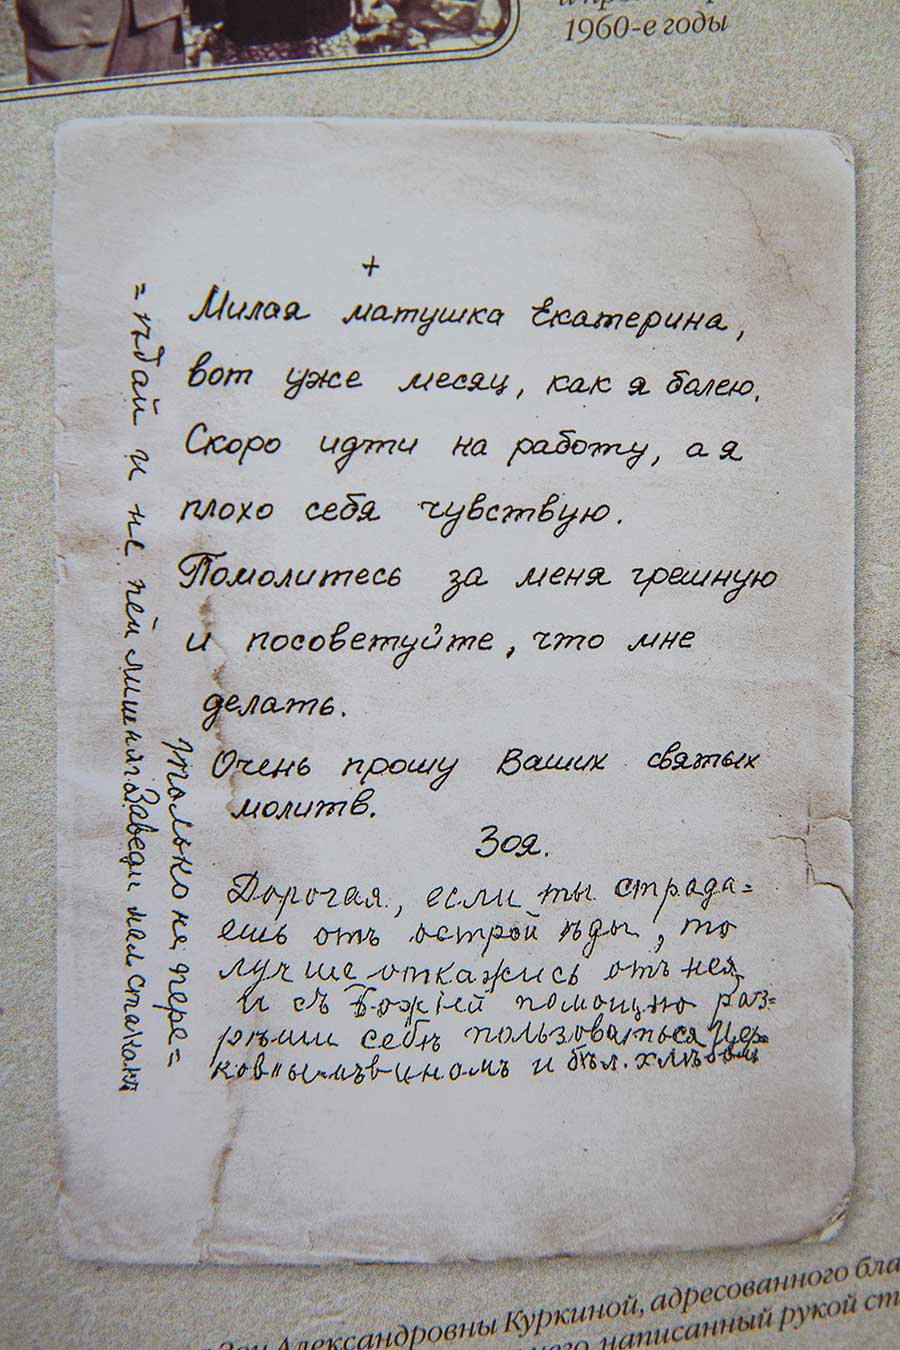 1960-е годы
+
Милая матушка Екатерина,
вот уже месяц, как я болею.
Скоро идти на работу, а я
плохо себя чувствую.
Помолитесь за меня грешную
и посоветуйте, что мне
делать.
Очень прошу Ваших святых
молитв.
Зоя.
Дорогая, если ты страда=
ешь отъ острой ѣды, то
лучше откажись отъ нея
и съ Божіей помощію раз=
рѣши себѣ пользоваться Цер=
ковнымъ виномъ и бѣл. хлѣбомъ
только не пере=
=ѣдай и не пей лишняго. Заведи мал. стакан
Александровны Куркиной, адресованного
написанный рукой